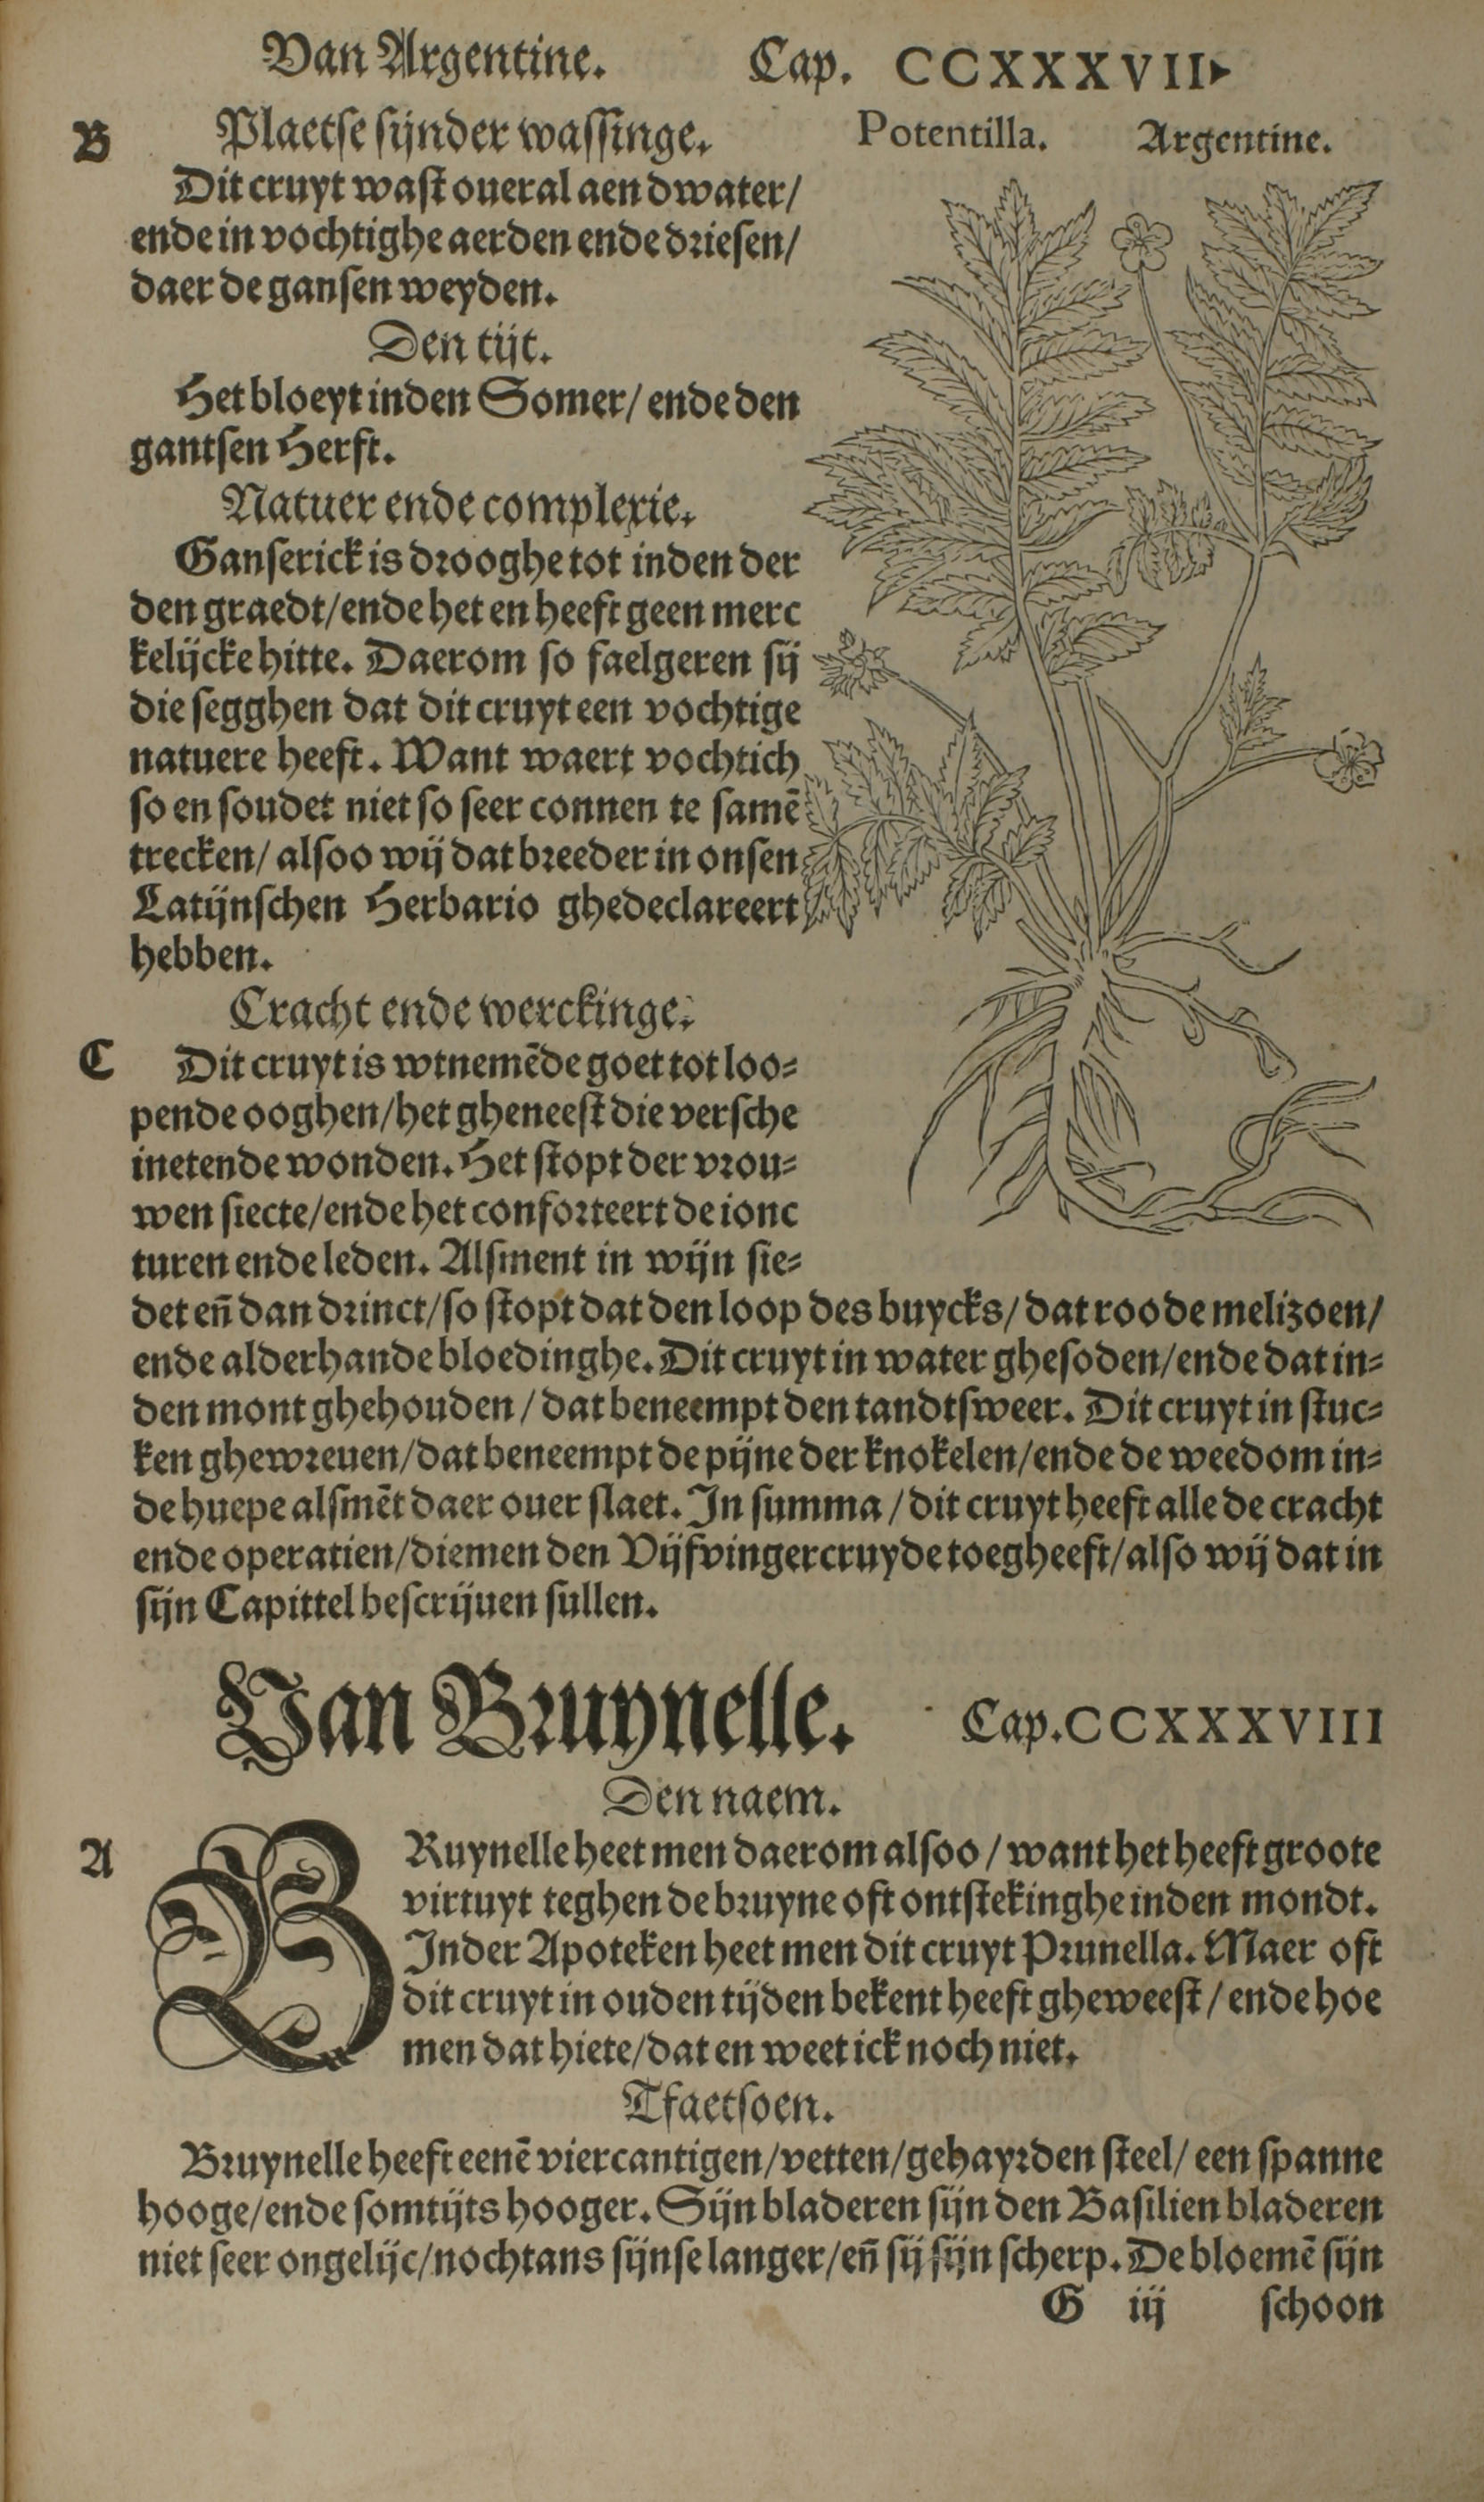 Van Argentine. Cap. CCXXXVII
Potentilla. Argentine.
B Plaetse sijnder wassinge.
Dit cruyt wast oueral aen dwater/
ende in vochtighe aerden ende driesen/
daer de gansen weyden.
Den tijt.
Het bloeyt inden Somer/ ende den
gantsen Herft.
Natuer ende complexie.
Ganserick is drooghe tot inden der
den graedt/ende het en heeft geen merc
kelijcke hitte. Daerom so faelgeren sij
die segghen dat dit cruyt een vochtige
natuere heeft. Want waert vochtich
so en soudet niet so seer connen te samē
trecken/ alsoo wij dat breeder in onsen
Latijnschen Herbario ghedeclareert
hebben.
Cracht ende werckinge.
C Dit cruyt is wtnemēde goet tot loo-
pende ooghen/het gheneest die versche
inetende wonden. Het stopt der vrou-
wen siecte/ende het conforteert de ionc
turen ende leden. Alsment in wijn sie-
det en̄ dan drinct/so stopt dat den loop des buycks/ dat roode melizoen/
ende alderhande bloedinghe. Dit cruyt in water ghesoden/ende dat in-
den mont ghehouden/ dat beneempt den tandtsweer. Dit cruyt in stuc-
ken ghewreuen/dat beneempt de pijne der knokelen/ende de weedom in-
de huepe alsmēt daer ouer slaet. In summa/ dit cruyt heeft alle de cracht
ende operatien/diemen den Vijfvingercruyde toegheeft/also wij dat in
sijn Capittel bescrijuen sullen.
Van Bruynelle. Cap.CCXXXVIII
Den naem.
A BRuynelle heet men daerom alsoo/ want het heeft groote
virtuyt teghen de bruyne oft ontstekinghe inden mondt.
Inder Apoteken heet men dit cruyt Prunella. Maer oft
dit cruyt in ouden tijden bekent heeft gheweest/ ende hoe
men dat hiete/dat en weet ick noch niet.
Tfaetsoen.
Bruynelle heeft eenē viercantigen/vetten/gehayrden steel/ een spanne
hooge/ende somtijts hooger. Sijn bladeren sijn den Basilien bladeren
niet seer ongelijc/nochtans sijnse langer/en̄ sij sijn scherp. De bloemē sijn
G iij schoon